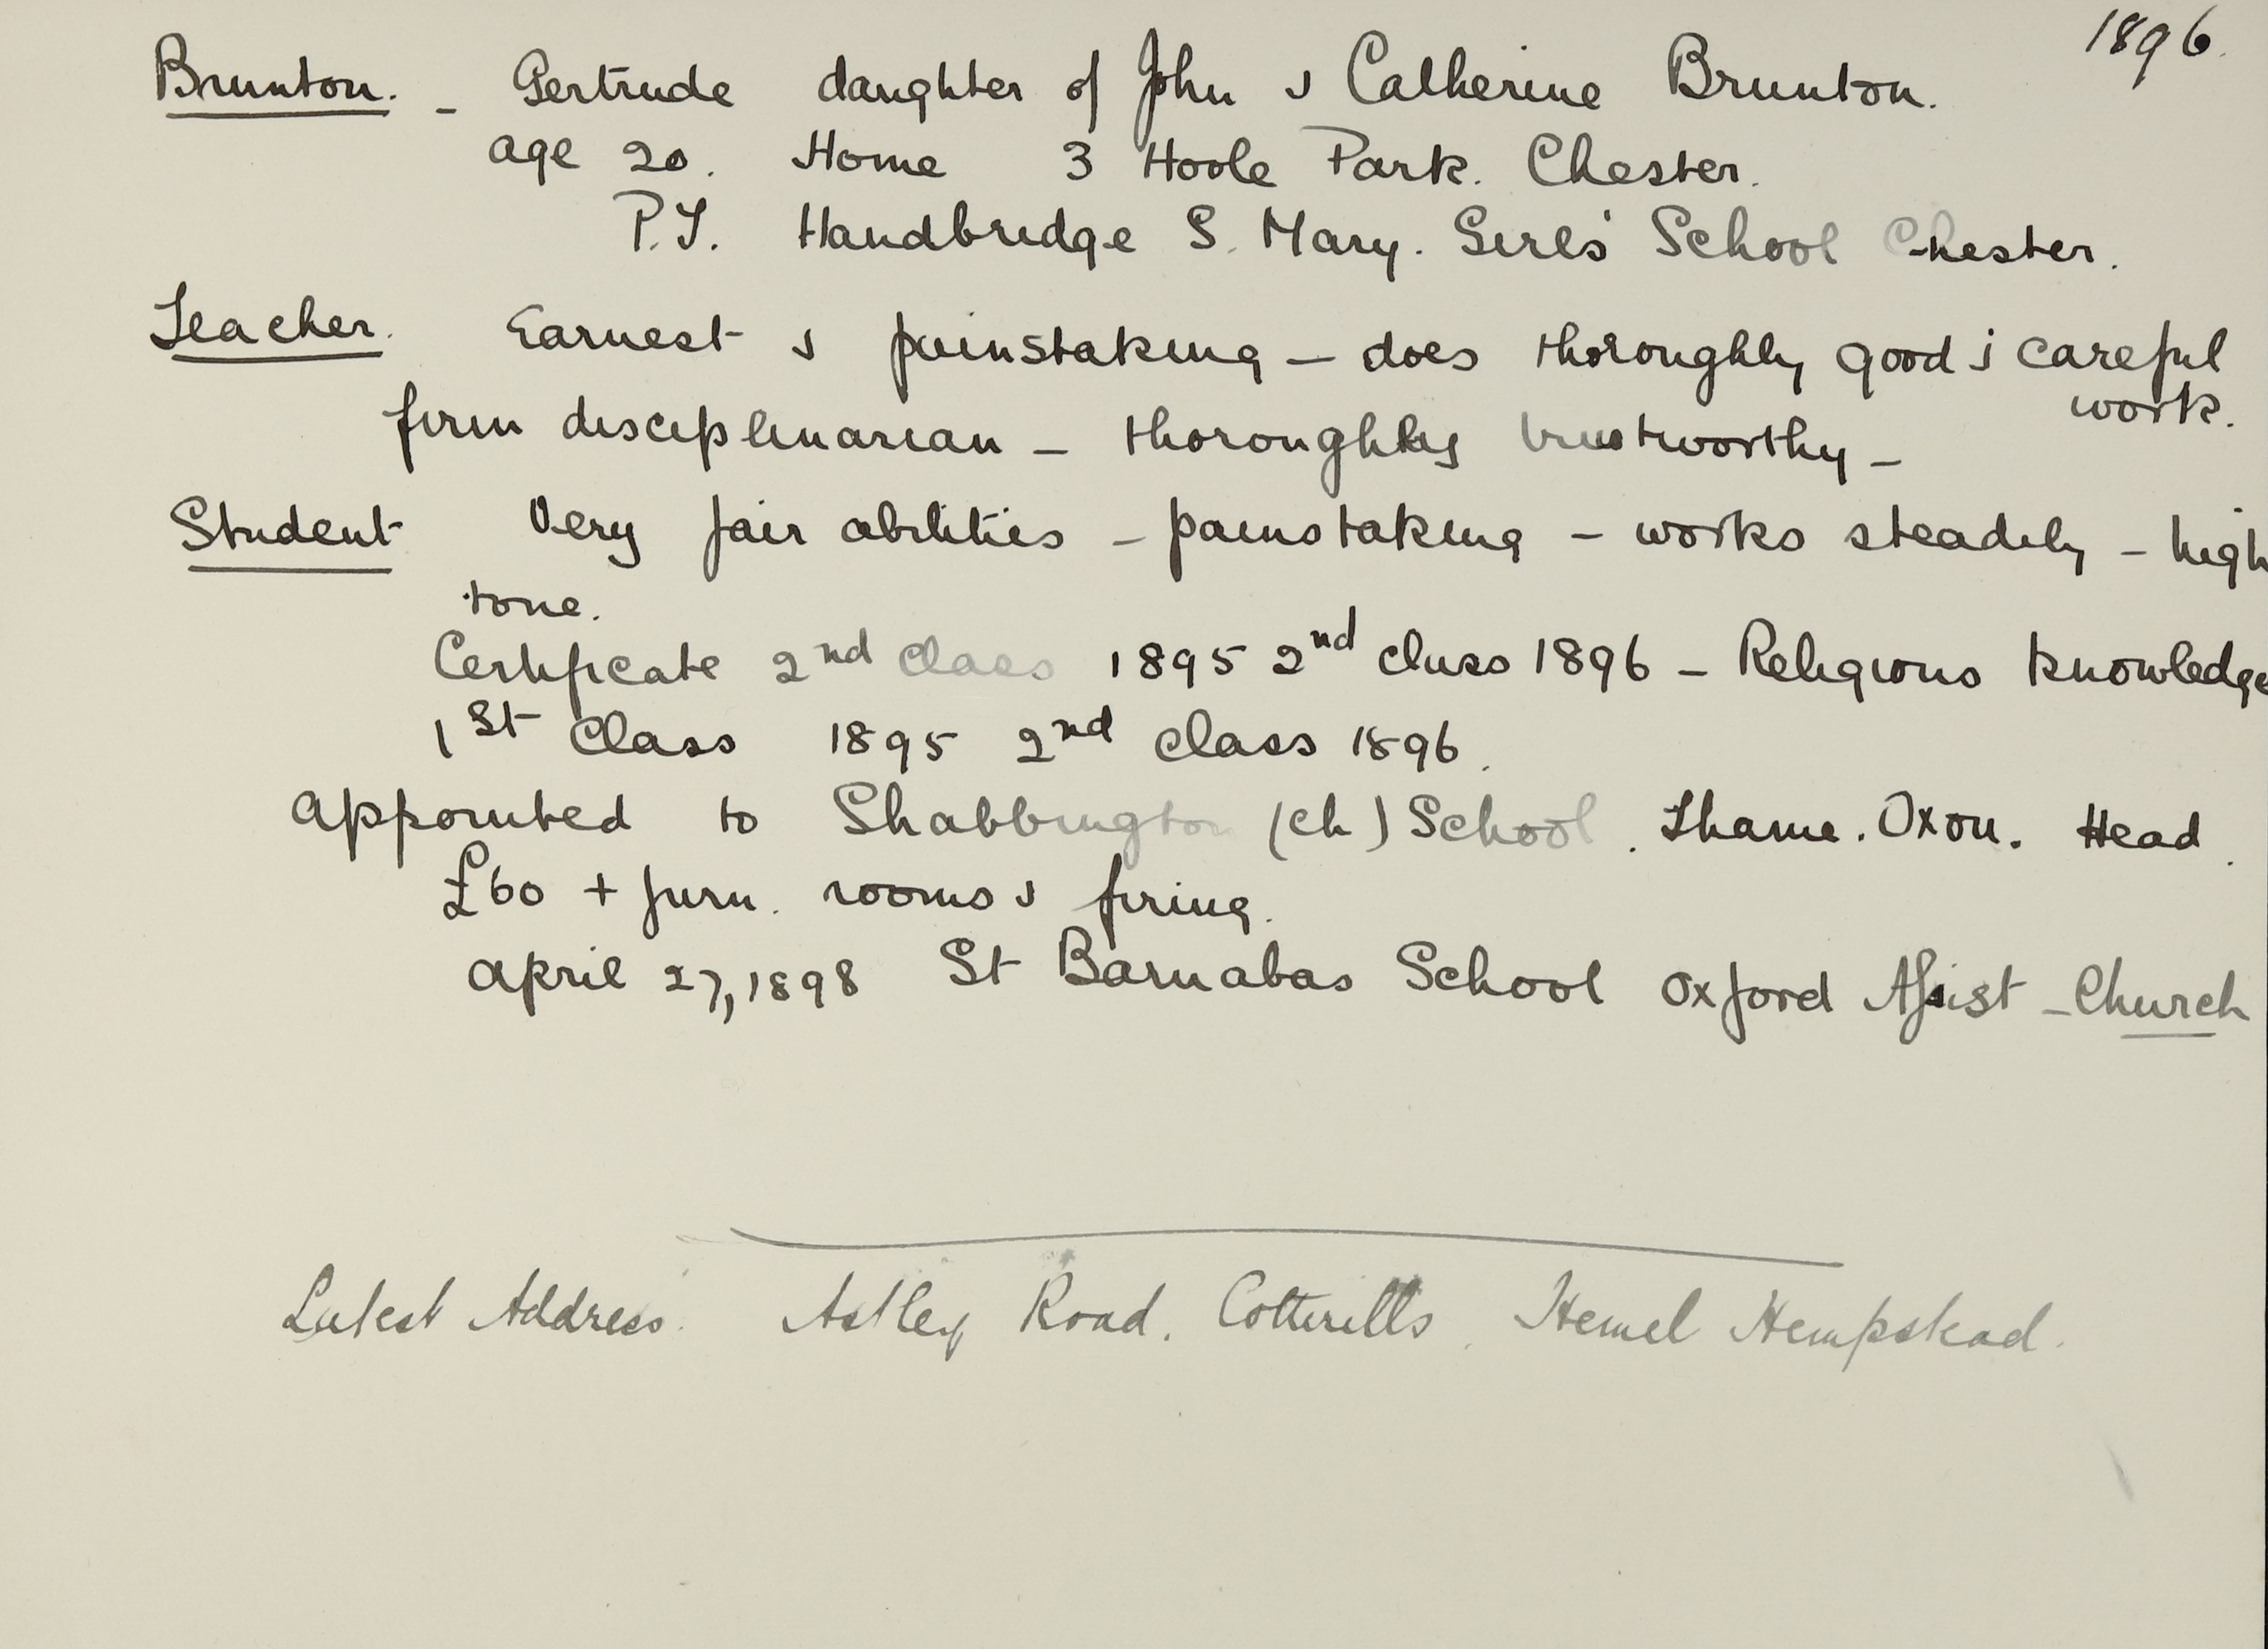 1896.
Brunton. - Gertrude daughter of John & Catherine Brunton.
age 20. Home 3 Hoole Park. Chester.
P.T. Handbridge S. Mary. Girls' School Chester.
Teacher. Earnest & painstaking - does thoroughly good & careful
work.
firm disciplinarian - thoroughly trustworthy -
Student Very fair abilities - painstaking - works steadily - high
tone.
Certificate 2nd class 1895 2nd class 1896 - Religious knowledge
1st Class 1895 2nd class 1896.
Appointed to Shabbington (ch) School. Thame. Oxon. Head.
£60 + furn. rooms & firing.
April 27, 1898 St Barnabas School Oxford Assist - Church
Latest Address. Astley Road. Cotterells. Hemel Hempstead.